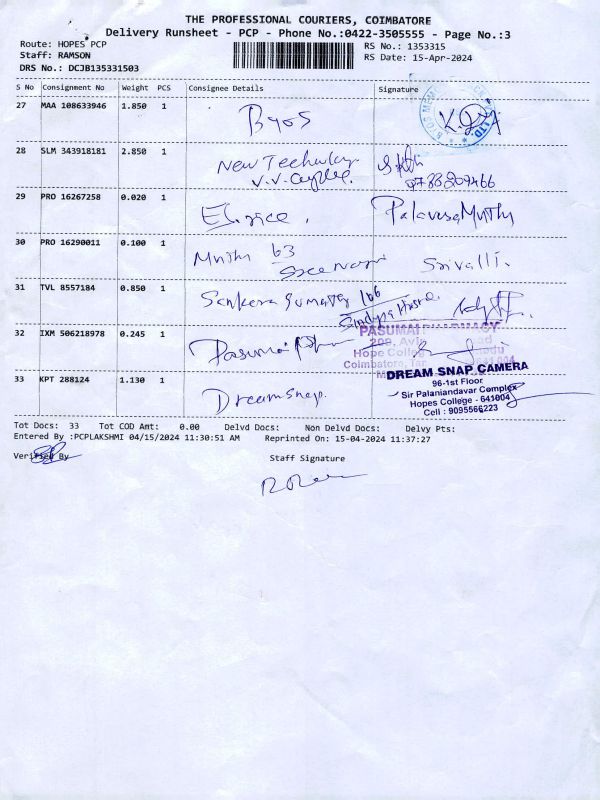 THE PROFESSIONAL COURIERS, COIMBATORE
Delivery Runsheet - PCP - Phone No.:0422-3505555 - Page No.:3
Route: HOPES PCP
Staff: RAMSON
DRS No.: DCJB135331503
RS No.: 1353315
RS Date: 15-Apr-2024
S No Consignment No Weight PCS Consignee Details Signature
27 MAA 108633946 1.850 1 Byos
28 SLM 343918181 2.850 1 New
V.V.
29 PRO 16267258 0.020 1
30 PRO 16290011 0.100 1 63
Sree Nagar Srivalli.
31 TVL 8557184 0.850 1 Sankara
32 IXM 506218978 0.245 1 Pasumai
PASUMAI PHARMACY
Hope College
Coimbatore,
33 KPT 288124 1.130 1 Dream Snap.
DREAM SNAP CAMERA
96-1st Floor
Sir Palaniandavar Complex
Hopes College - 641004
Cell : 9095566223
Tot Docs: 33 Tot COD Amt: 0.00 Delvd Docs: Non Delvd Docs: Delvy Pts:
Entered By :PCPLAKSHMI 04/15/2024 11:30:51 AM Reprinted On: 15-04-2024 11:37:27
Verified By Staff Signature